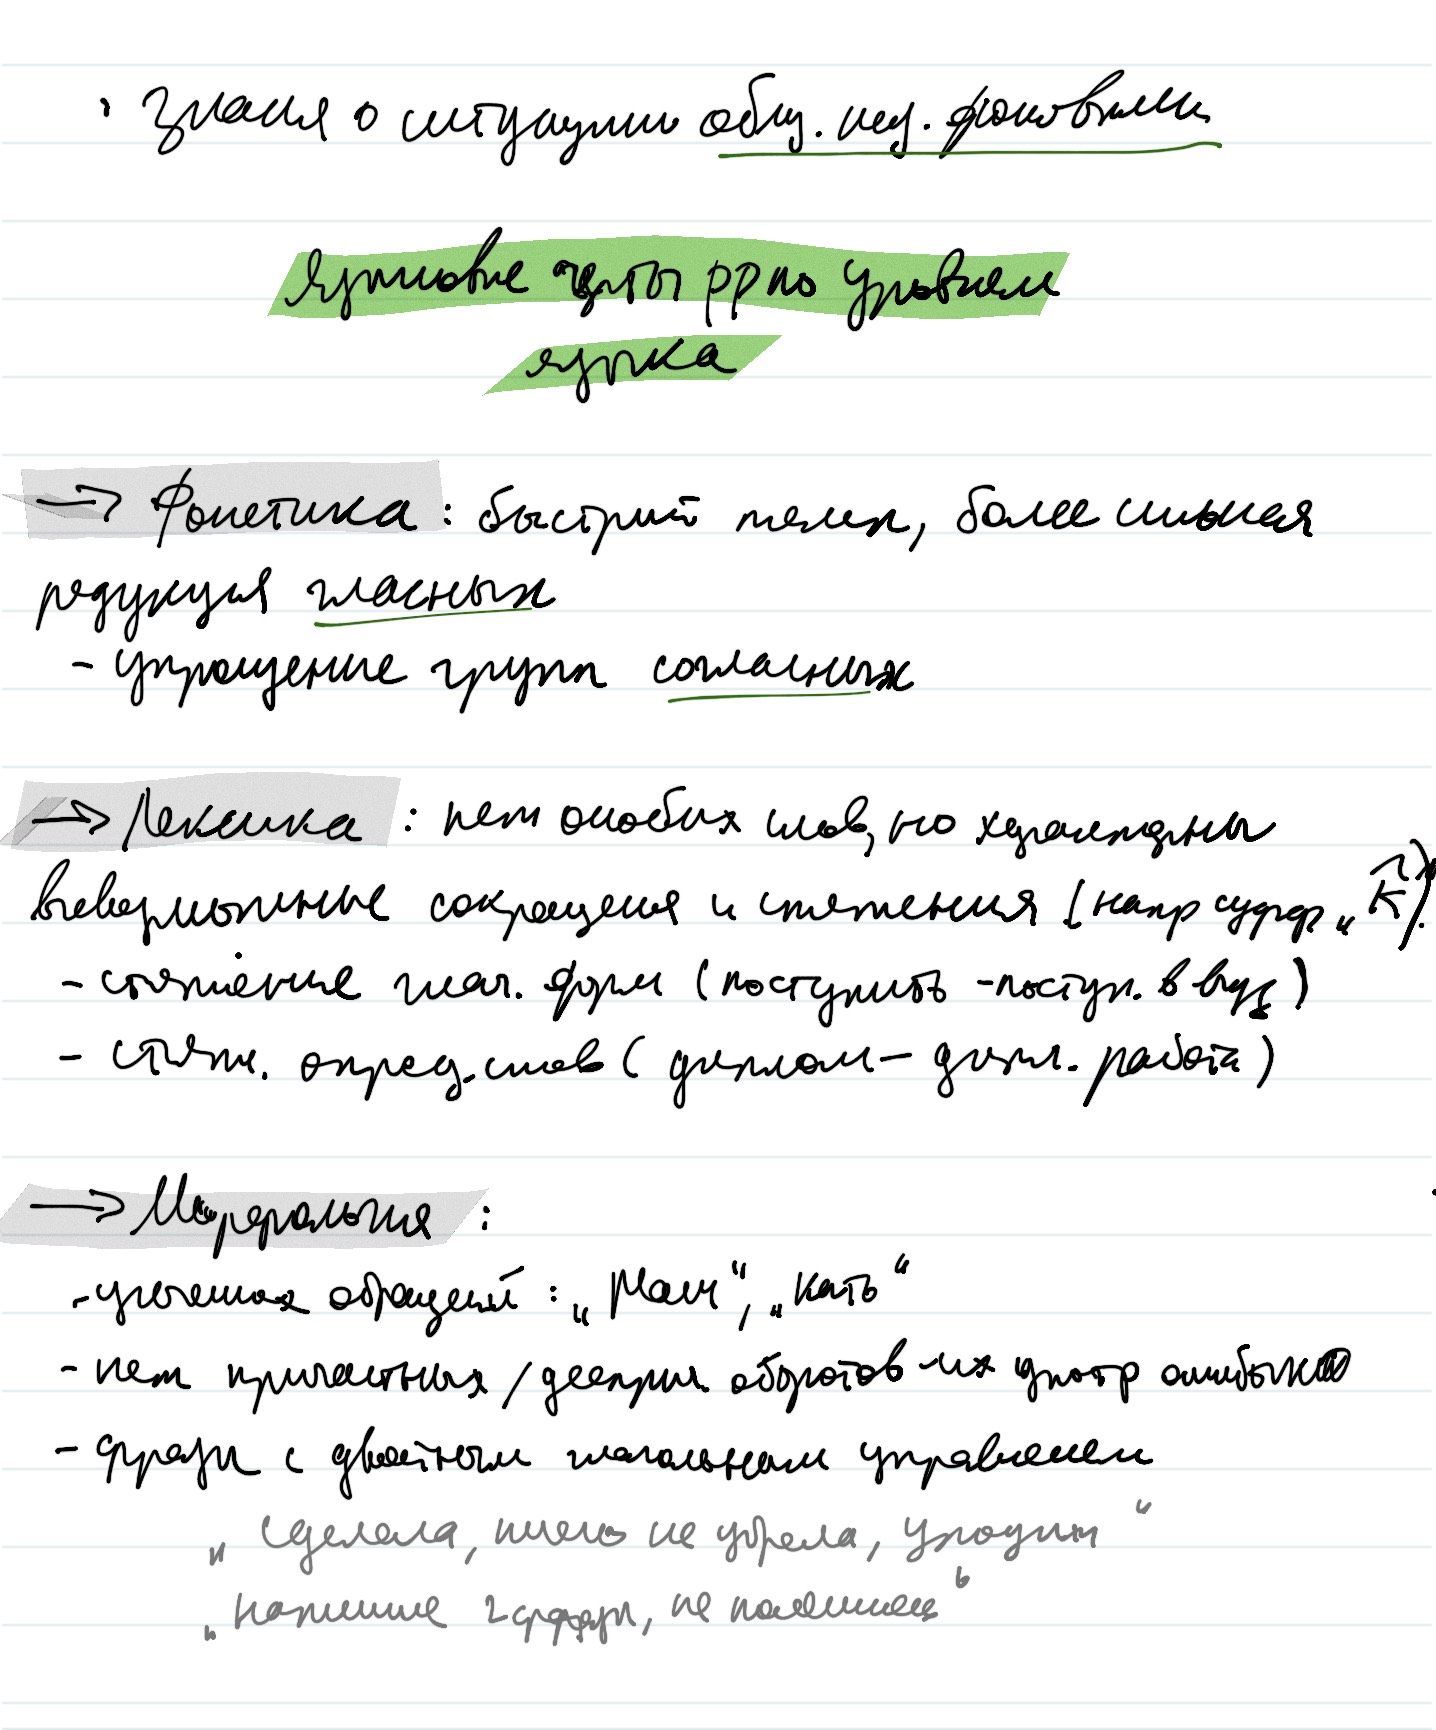 · Знания о ситуации общ. наз. фоновыми
Языковые черты РР по уровням
языка
→ Фонетика: быстрый темп, более сильная
редукция гласных
- упрощение групп согласных
→ Лексика: нет особых слов, но характерны
всевозможные сокращения и стяжения (напр суфф „к")
- стяжение глаг. форм (поступить - поступ. в вуз)
- стяж. опред. слов (диплом - дипл. работа)
→ Морфология:
- усечения обращений: „Маш", „Кать"
- нет причастных/дееприч. оборотов их употр ошибочно
- фразы с двойным глагольным управлением
„сделала, не убрала, уходит"
„напишите 2 фразы, не поленись"